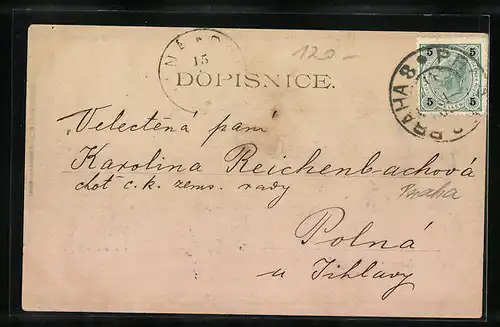 15
120 –
DOPISNICE.
5 5
5 5
PRAHA 8
„Velectěná paní
Karolina Reichenbachová
choť c. k. zems. rady
Praha
Polná
u Jihlavy